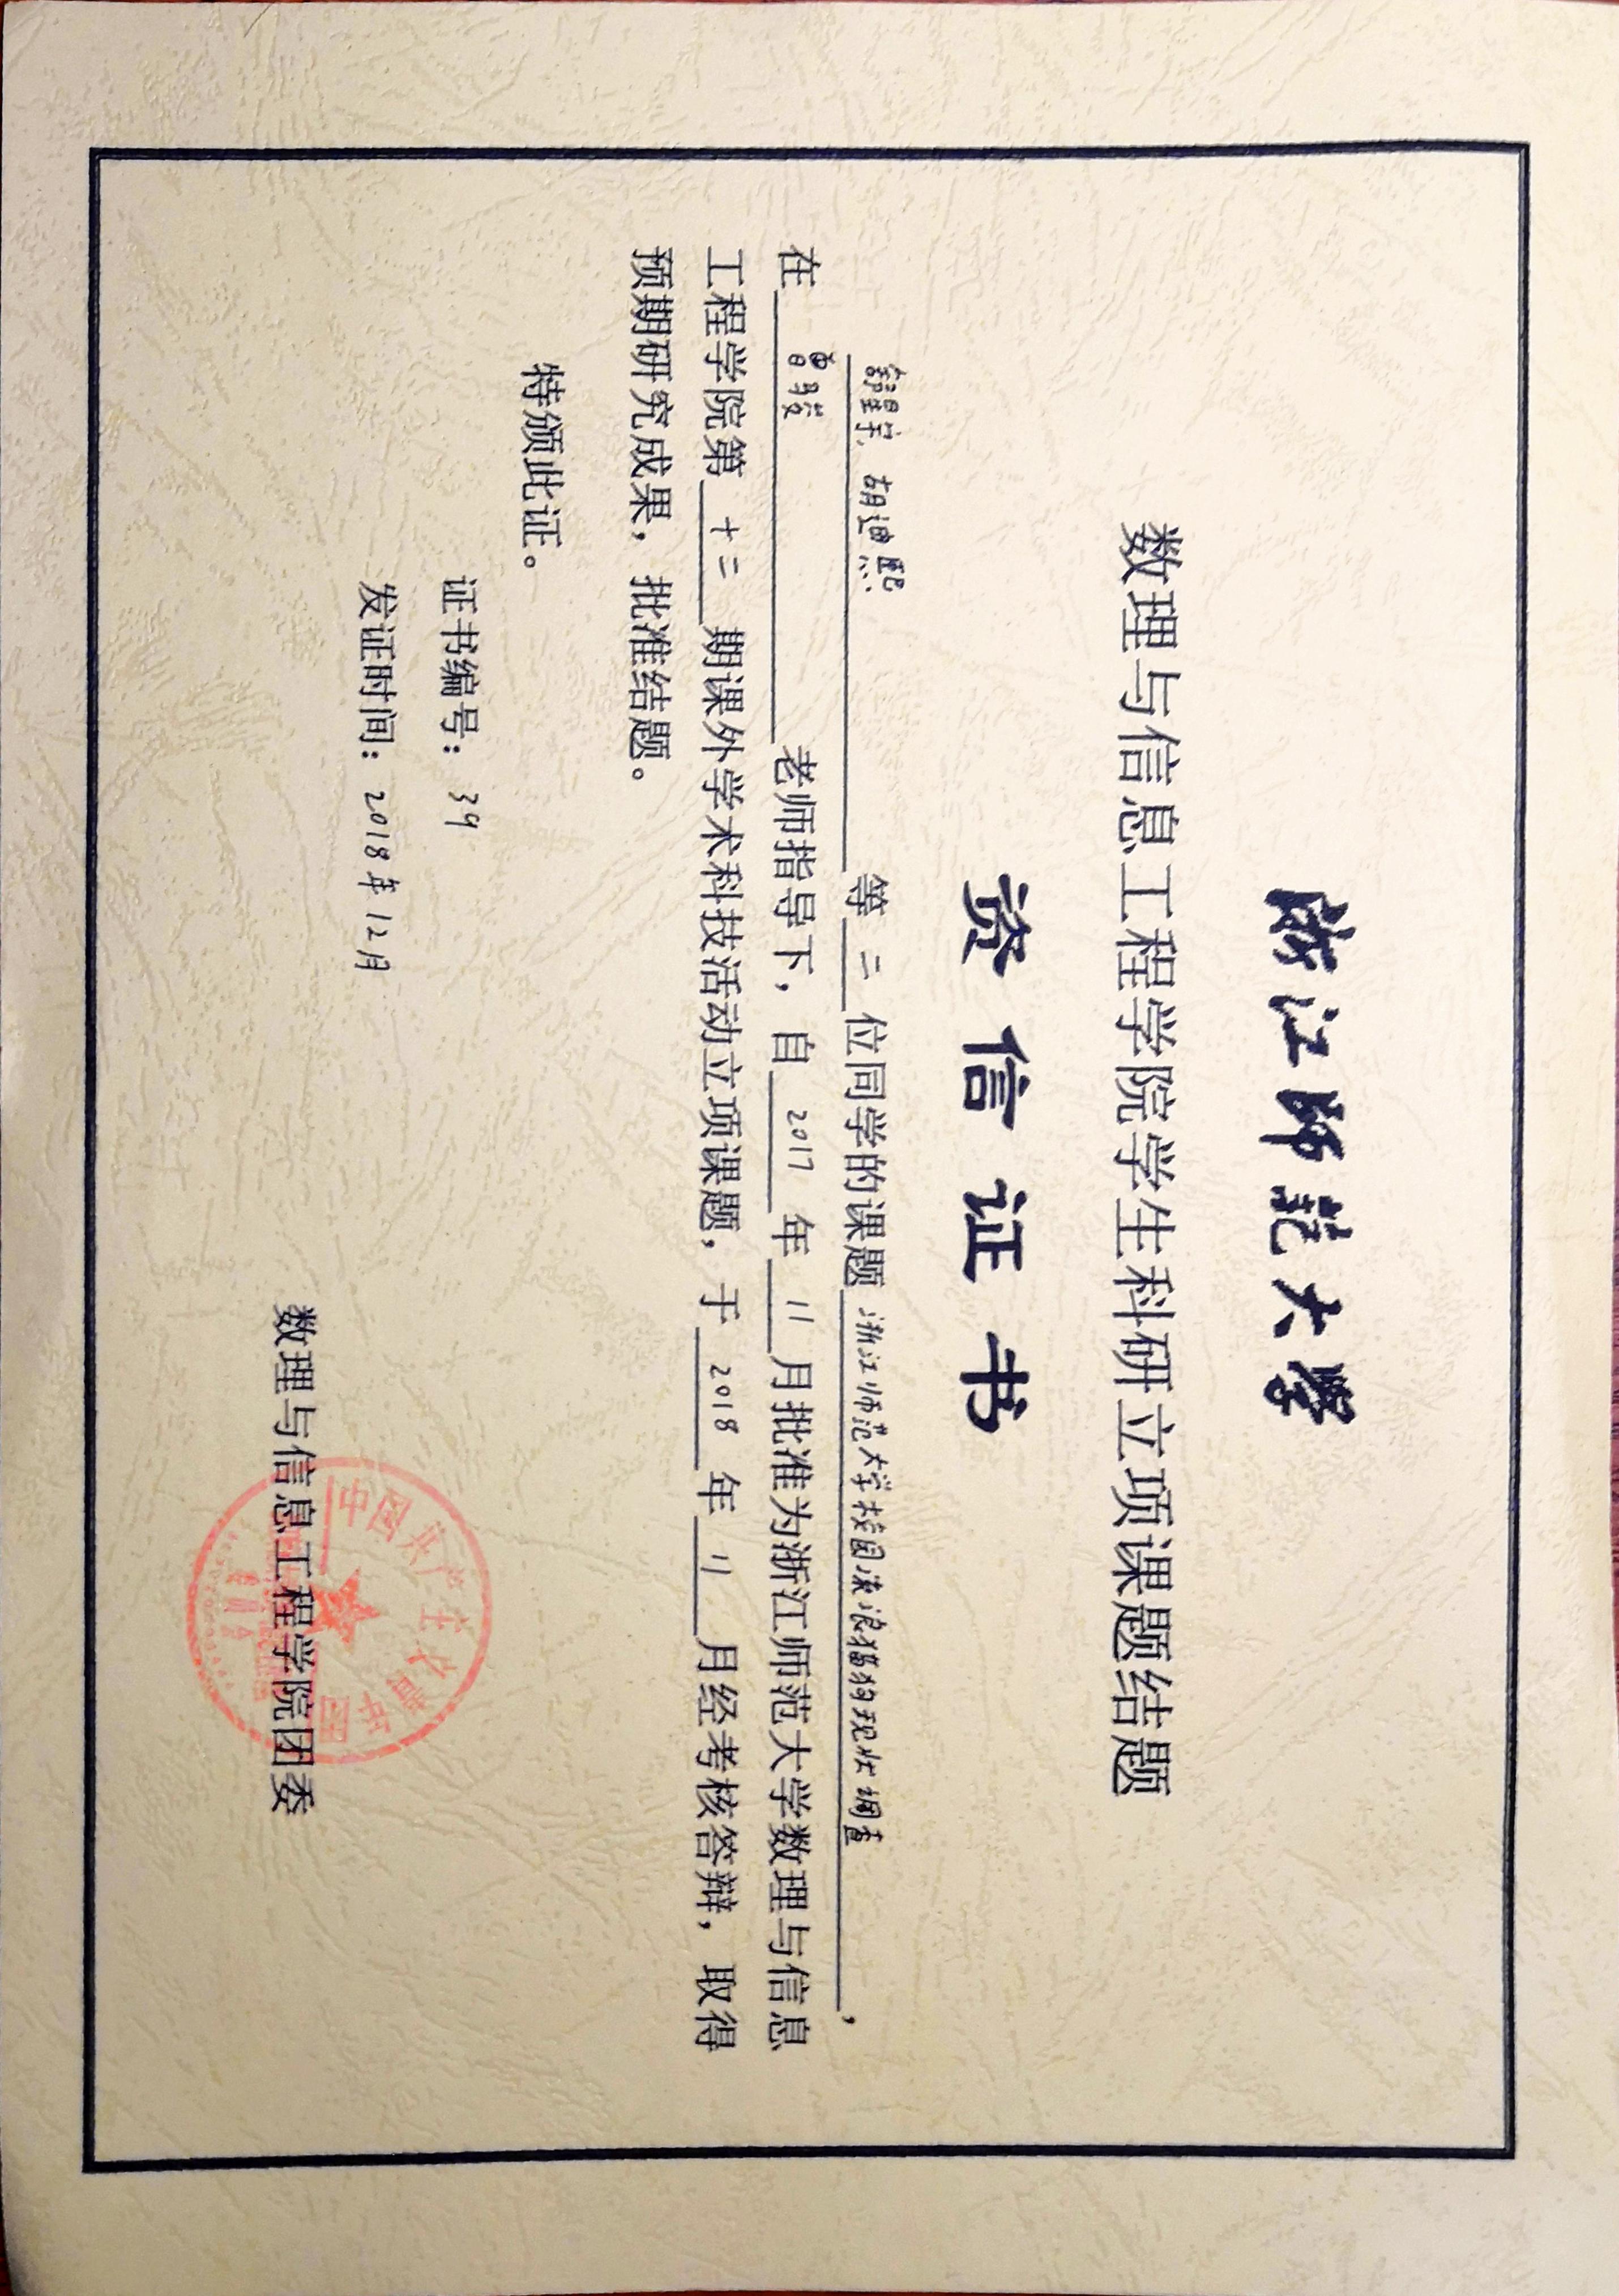 浙江師范大學
数理与信息工程学院学生科研立项课题结题
资信证书
舒星宇, 胡迪熙 等 二 位同学的课题 浙江师范大学校园流浪猫狗现状调查，
在 曹骏 老师指导下，自 2017 年 11 月批准为浙江师范大学数理与信息
工程学院第 十二 期课外学术科技活动立项课题，于 2018 年 11 月经考核答辩，取得
预期研究成果，批准结题。
特颁此证。
证书编号：39
发证时间：2018年12月
中国共产主义青年团
数理与信息工程学院团委
委员会